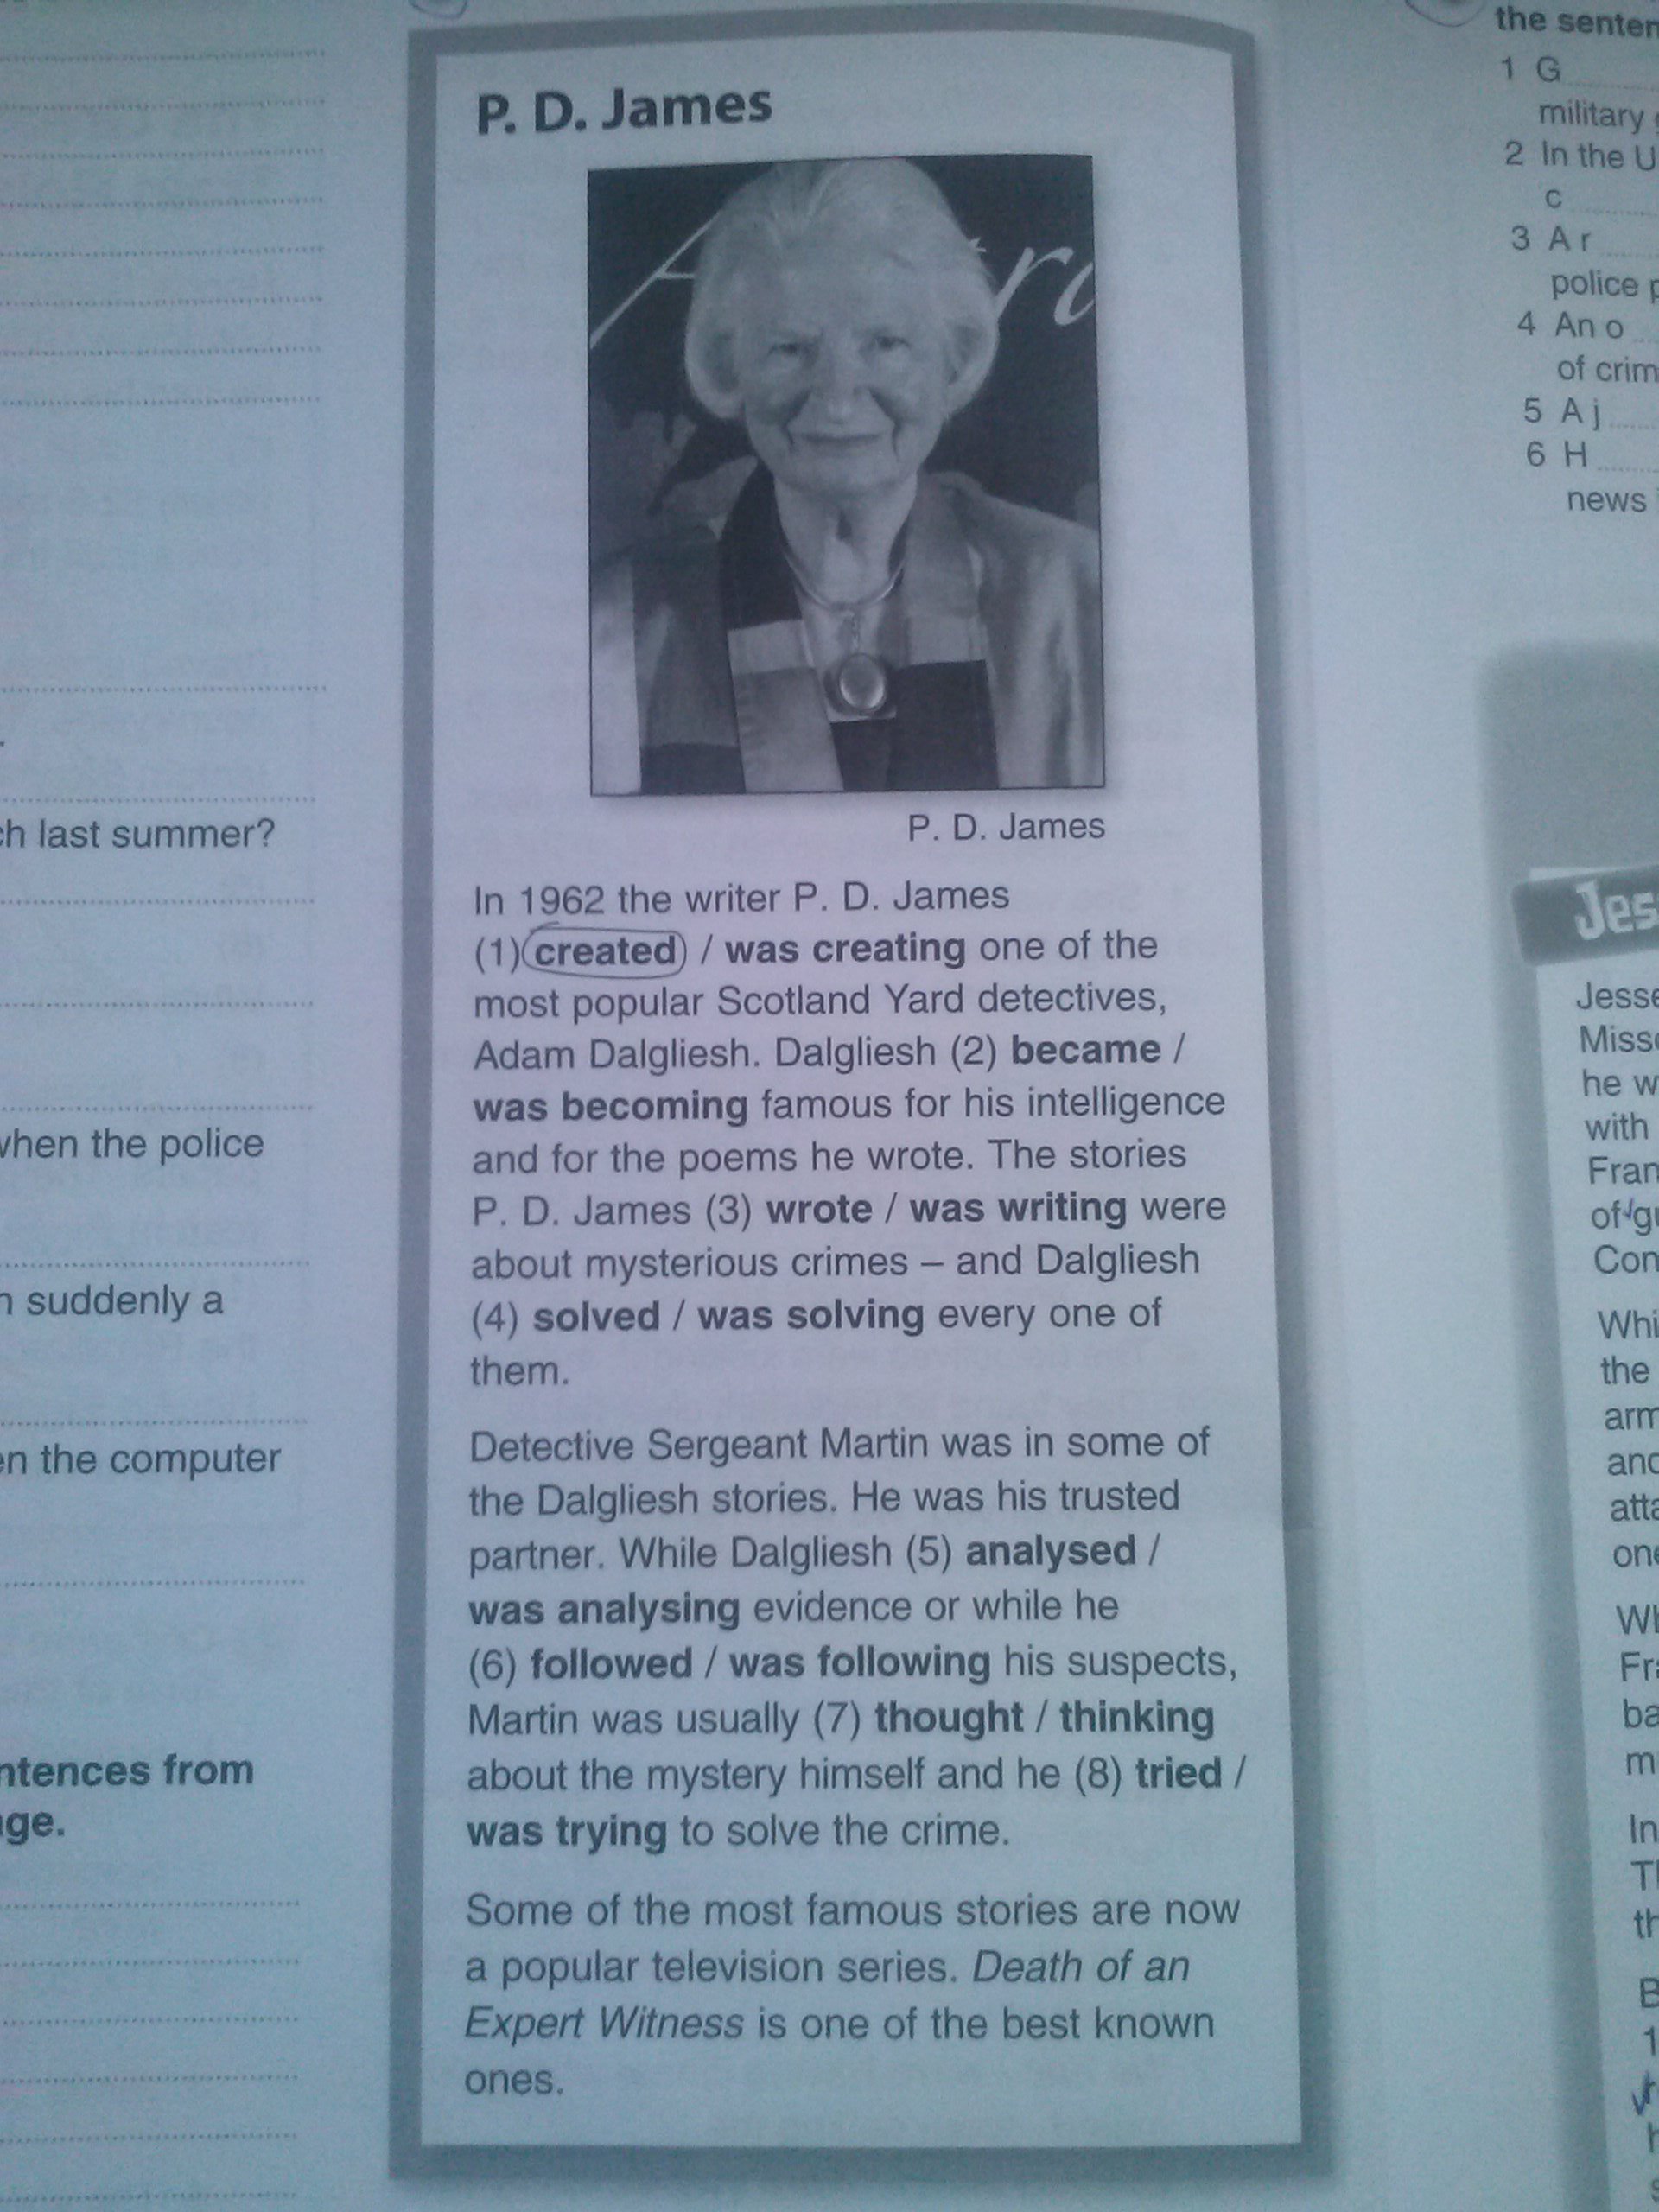 ch last summer?
when the police
suddenly a
the computer
from
P. D. James
P. D. James
In 1962 the writer P. D. James
(1) created / was creating one of the
most popular Scotland Yard detectives,
Adam Dalgliesh. Dalgliesh (2) became /
was becoming famous for his intelligence
and for the poems he wrote. The stories
P. D. James (3) wrote / was writing were
about mysterious crimes – and Dalgliesh
(4) solved / was solving every one of
them.
Detective Sergeant Martin was in some of
the Dalgliesh stories. He was his trusted
partner. While Dalgliesh (5) analysed /
was analysing evidence or while he
(6) followed / was following his suspects,
Martin was usually (7) thought / thinking
about the mystery himself and he (8) tried /
was trying to solve the crime.
Some of the most famous stories are now
a popular television series. Death of an
Expert Witness is one of the best known
ones.
the
1 G
military
2 In the U
c
3 A r
police p
4 An o
of crim
5 A j
6 H
news
Jes
Jesse
Miss
he w
with
Fran
of gu
Con
Whi
the
arm
and
atta
one
Wh
Fra
ba
m
In
Th
th
B
1